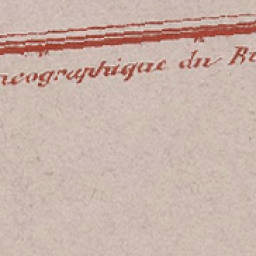 ncographique du Bu